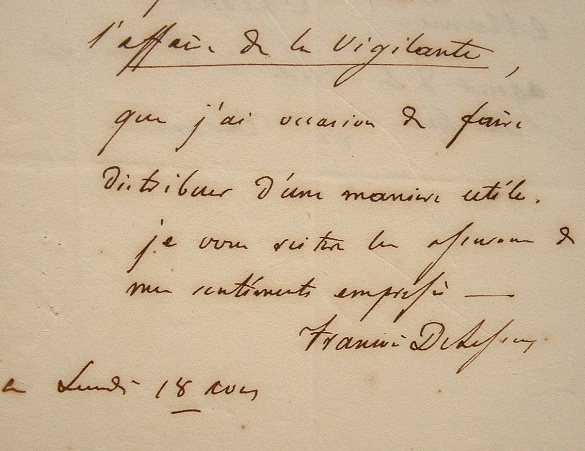 l'affaire de la Vigilante,
que j'ai occasion de faire
distribuer d'une manière utile.
je vous réitère les assurances de
mes sentiments empressés —
Francis Delessert
Lundi 18